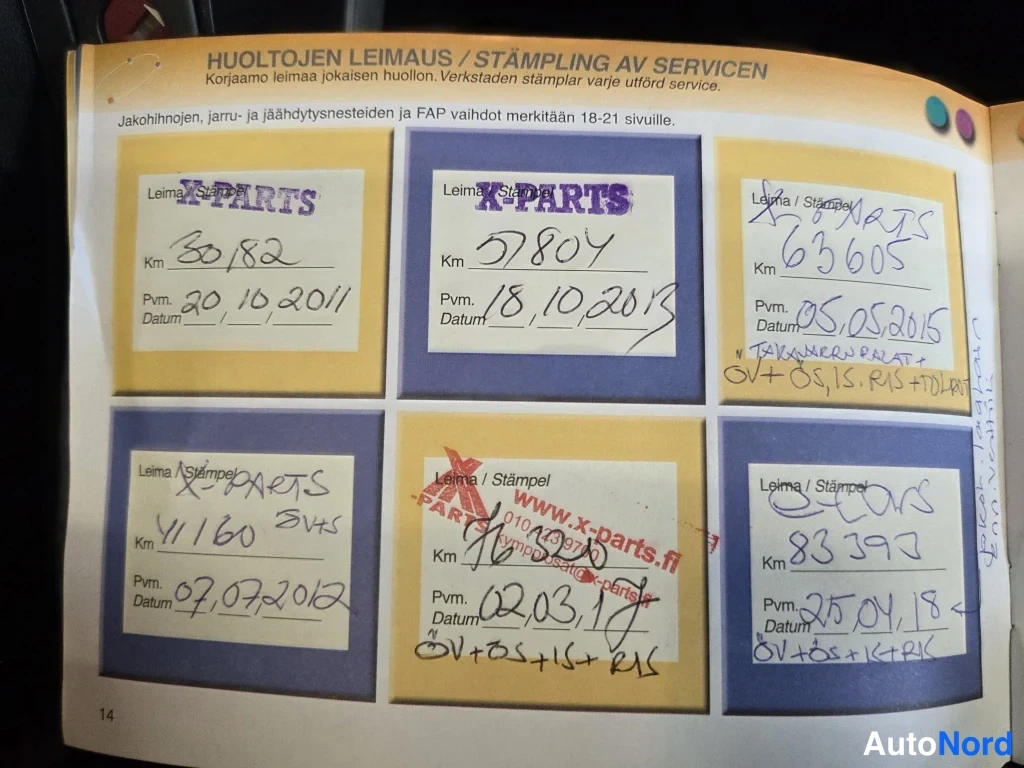 HUOLTOJEN LEIMAUS / STÄMPLING AV SERVICEN
Korjaamo leimaa jokaisen huollon. Verkstaden stämplar varje utförd service.
Jakohihnojen, jarru- ja jäähdytysnesteiden ja FAP vaihdot merkitään 18-21 sivuille.
Leima / Stämpel
X-PARTS
Km 30,182
Pvm.
Datum 20,10,2011
Leima / Stämpel
X-PARTS
Km 57804
Pvm.
Datum 18,10,2013
Leima / Stämpel
X-PARTS
Km 63605
Pvm.
Datum 05,05,2015
TAKAJARRUPALAT +
ÖV+ ÖS, IS. RIS +
Leima / Stämpel
X-PARTS
ÖV+S
Km 41160
Pvm.
Datum 07,07,2012
Leima / Stämpel
X
-PARTS
www.x-parts.fi
Km
Pvm.
Datum 02,03,17
ÖV+ÖS+IS+ RIS
Leima / Stämpel
Km 83393
Pvm.
Datum 25,04,18
ÖV+ÖS+IS+RIS
14
AutoNord